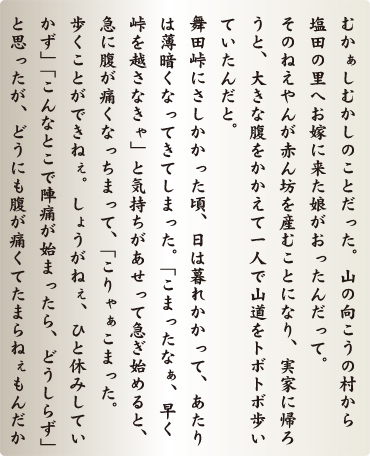 むかぁしむかしのことだった。山の向こうの村から
塩田の里へお嫁に来た娘がおったんだって。
そのねえやんが赤ん坊を産むことになり、実家に帰ろ
うと、大きな腹をかかえて一人で山道をトボトボ歩い
ていたんだと。
舞田峠にさしかかった頃、日は暮れかかって、あたり
は薄暗くなってきてしまった。「こまったなぁ、早く
峠を越さなきゃ」と気持ちがあせって急ぎ始めると、
急に腹が痛くなっちまって、「こりゃぁこまった。
歩くことができねぇ。しょうがねぇ、ひと休みしてい
かず」「こんなとこで陣痛が始まったら、どうしらず」
と思ったが、どうにも腹が痛くてたまらねぇもんだか